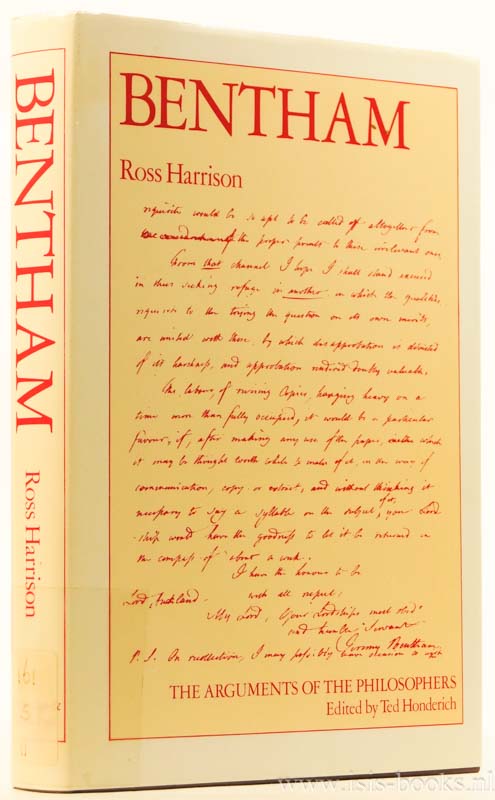 BENTHAM
Ross Harrison
requisite would be so apt to be called off altogether from
the consideration of the proper points to these irrelevant ones.
From that channel I hope I shall stand excused
in thus seeking refuge in another in which the qualities,
requisite to the trying the question on its own merits,
are united with those, by which disapprobation is divested
of its harshness, and approbation rendered doubly valuable.
The labour, of revising Copies, hanging heavy on a
time more than fully occupied, it would be a particular
favour, if, after making any use of the paper, which
it may be thought worth while to make of it, in the way of
communication, copy or extract, and without thinking it
necessary to say a syllable on the subject, of it, your Lord
ship would have the goodness to let it be returned in
the compass of about a week.
I have the honour to be
with all respect,
Lord Auckland.
My Lord, Your Lordships most obed
and humble Servant
Jeremy Bentham
P.S. On recollection, I may possibly have occasion to
THE ARGUMENTS OF THE PHILOSOPHERS
Edited by Ted Honderich
BENTHAM
Ross Harrison
www.isis-books.nl